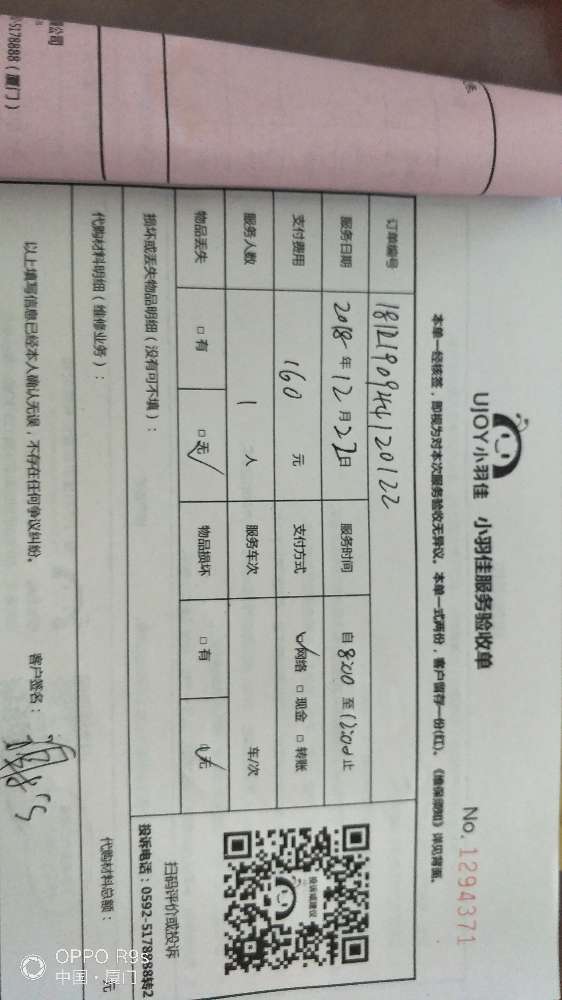 公司
-5178888（厦门）
UJOY小羽佳 小羽佳服务验收单
No. 1294371
本单一经核签，即视为对本次服务验收无异议。本单一式两份，客户留存一份(红)。《维保须知》详见背面。
订单编号 1812190944120122
服务日期 2018年12月22日 服务时间 自8:00至12:00止
支付费用 160元 支付方式 ☑网络 □现金 □转账
服务人数 1人 服务车次 车/次
物品丢失 □有 ☑无 物品损坏 □有 ☑无
投诉或建议
扫码评价或投诉
投诉电话：0592-5178888转2
损坏或丢失物品明细（没有可不填）：
代购材料明细（维修业务）： 代购材料总额： 元
以上填写信息已经本人确认无误，不存在任何争议纠纷。 客户签名：
OPPO R9s
中国·厦门